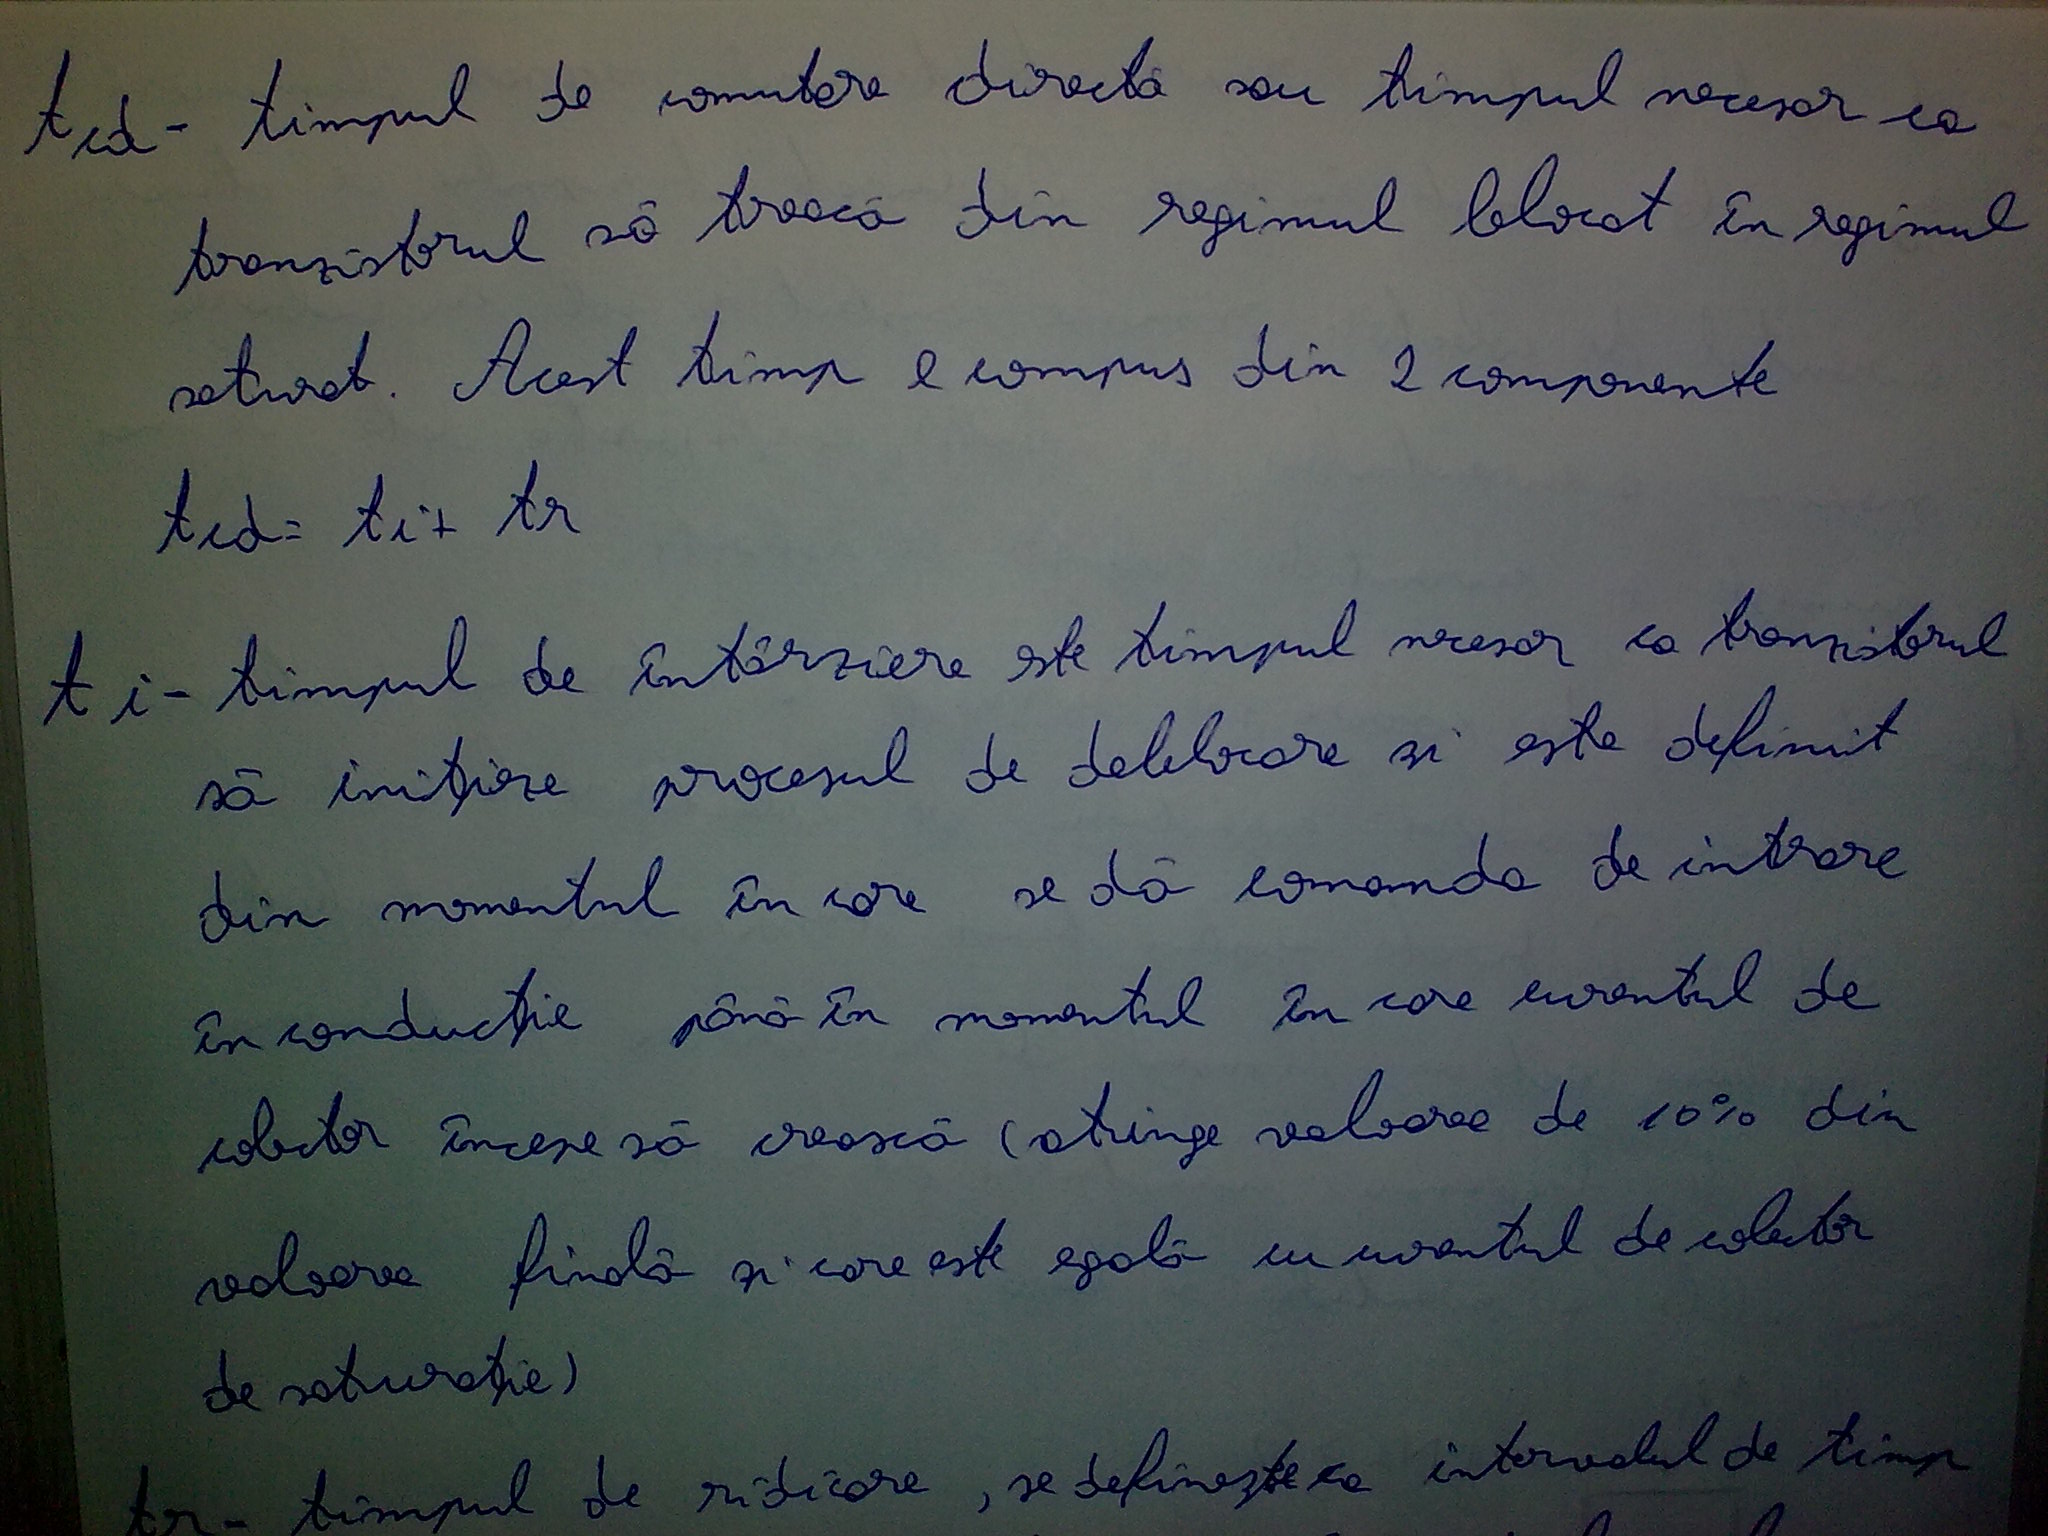 tcd - timpul de comutare directă sau timpul necesar ca
tranzistorul să treacă din regimul blocat în regimul
saturat. Acest timp e compus din 2 componente
tcd = ti + tr
ti - timpul de întârziere este timpul necesar ca tranzistorul
să inițieze procesul de deblocare și este definit
din momentul în care se dă comanda de intrare
în conducție până în momentul în care curentul de
colector începe să crească (atinge valoarea de 10% din
valoarea finală și care este egală cu curentul de colector
de saturație)
tr - timpul de ridicare, se definește ca intervalul de timp